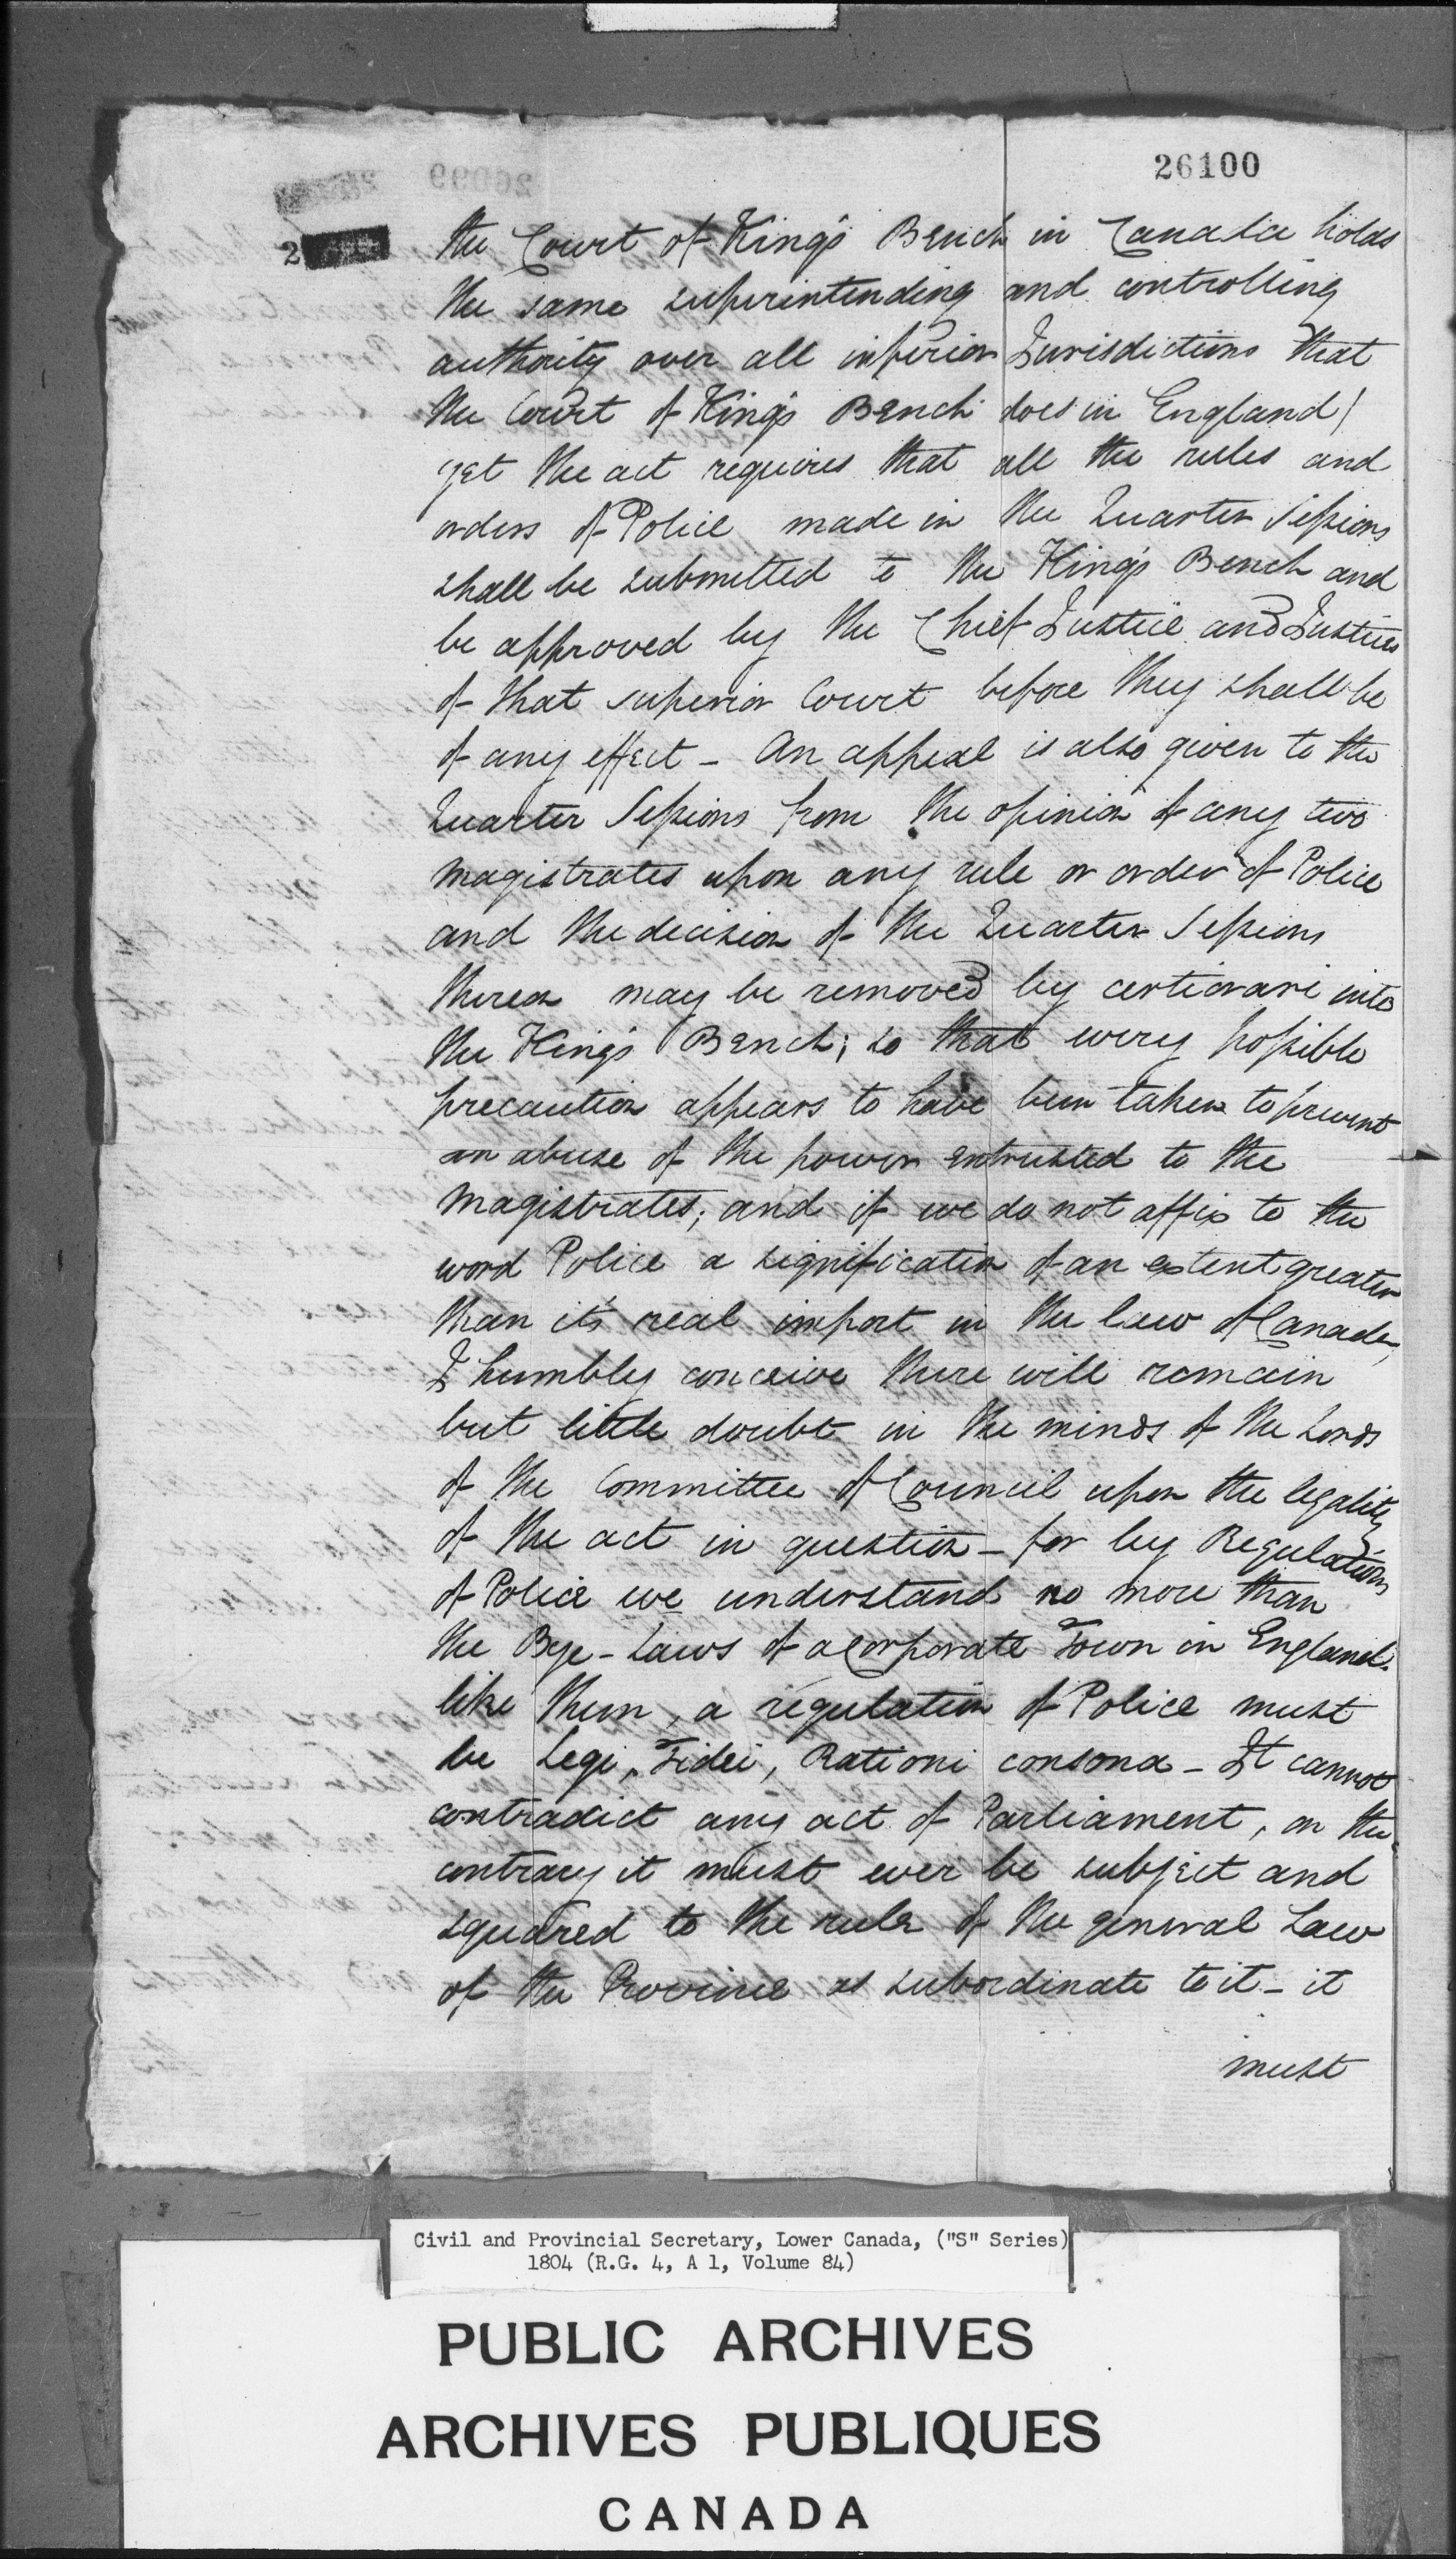 26100
2
the Court of King's Bench in Canada holds
the same superintending and controlling
authority over all inferior Jurisdictions that
the Court of King's Bench does in England/
yet the act requires that all the rules and
orders of Police made in the Quarter Sessions
shall be submitted to the King's Bench and
be approved by the Chief Justice and Justices
of that superior Court before they shall be
of any effect - An appeal is also given to the
Quarter Sessions from the opinion of any two
Magistrates upon any rule or order of Police
and the decision of the Quarter Sessions
therea may be removed by certiorari into
the King's Bench; so that every possible
precaution appears to have been taken to prevent
an abuse of the power entrusted to the
Magistrates; and if we do not affix to the
word Police a signification of an extent greater
than it's real import in the law of Canada,
I humbly conceive there will remain
but little doubt in the minds of the Lords
of the Committee of Council upon the legality
of the act in question - for by Regulations
of Police we understand no more than
the Bye-Laws of a Corporate Town in England.
like them, a regulation of Police must
be Legi, Fidei, Rationi consona - It cannot
contradict any act of Parliament, on the
contrary it must ever be subject and
squared to the rule of the general Law
of the Province as subordinate to it - it
must
Civil and Provincial Secretary, Lower Canada, ("S" Series)
1804 (R.G. 4, A 1, Volume 84)
PUBLIC ARCHIVES
ARCHIVES PUBLIQUES
CANADA